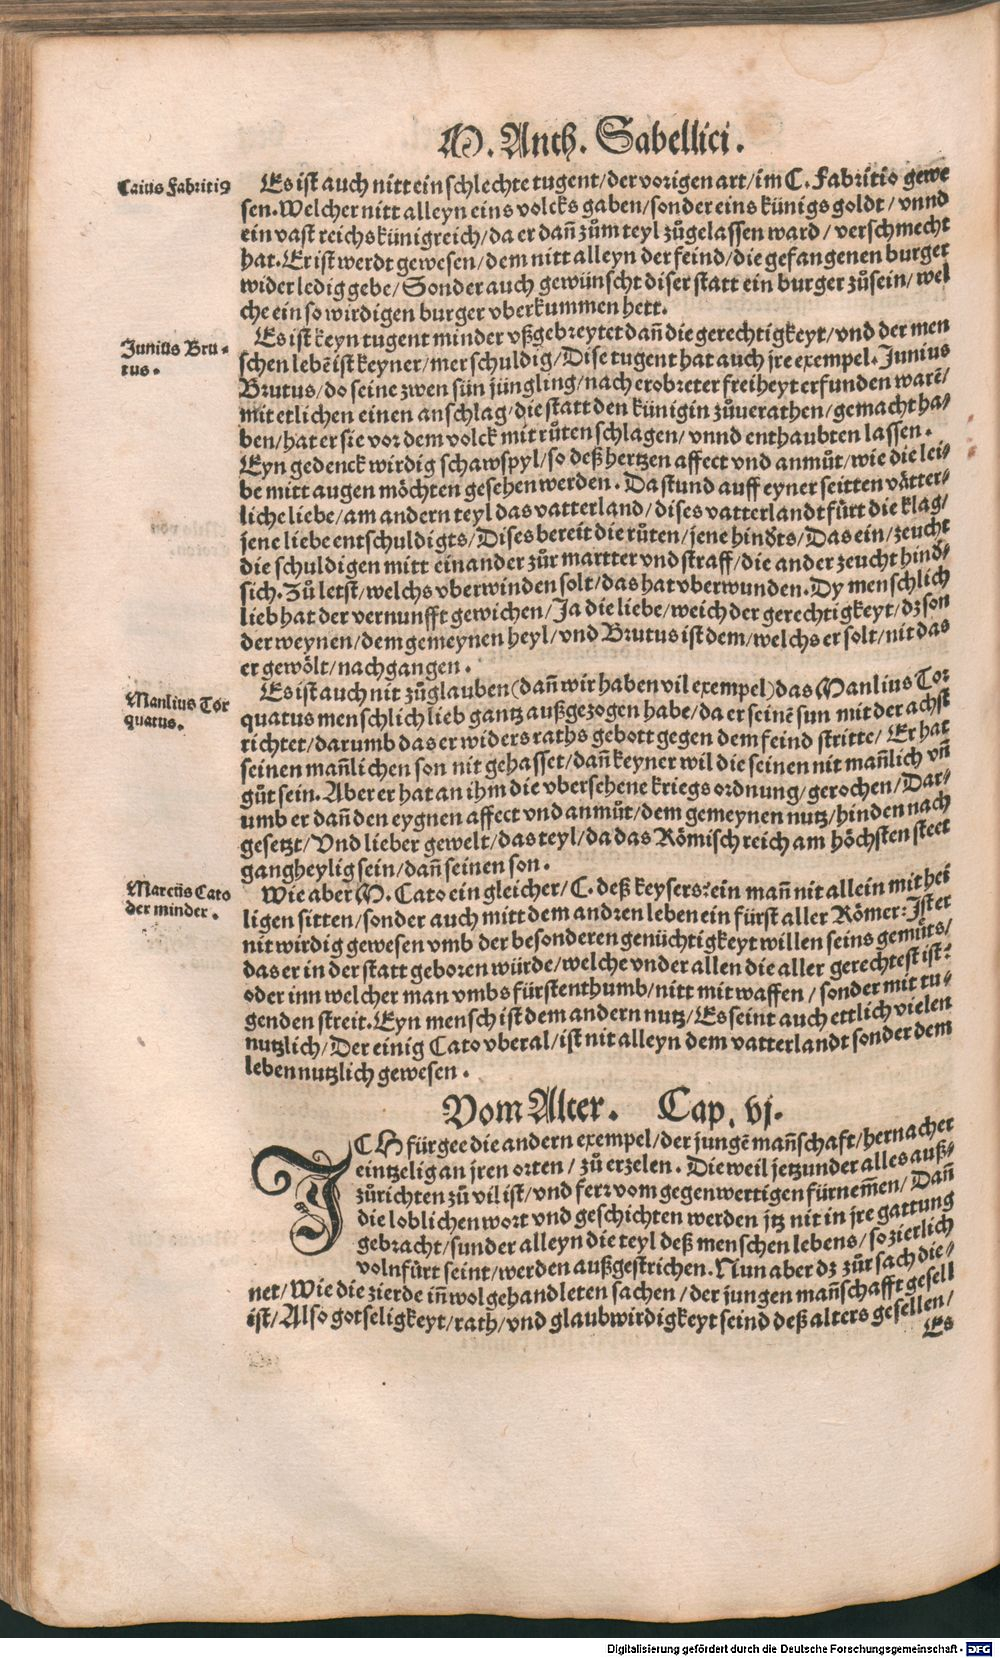 M. Anth. Sabellici.
Caius Fabritiꝰ
Es ist auch nitt ein schlechte tugent/ der vorigen art/ im C. Fabritio gewe
sen. Welcher nitt alleyn eins volcks gaben/ sonder eins künigs goldt/ vnnd
ein vast reichs künigreich/ da er dañ zům teyl zůgelassen ward/ verschmecht
hat. Er ist werdt gewesen/ dem nitt alleyn der feind/ die gefangenen burger
wider ledig gebe/ Sonder auch gewünscht diser statt ein burger zůsein/ wel
che ein so wirdigen burger vberkummen hett.
Junius Bru-
tus.
Es ist keyn tugent minder vßgebreytet dañ die gerechtigkeyt/ vnd der men
schen lebē ist keyner/ mer schuldig/ Dise tugent hat auch jre exempel. Junius
Brutus/ do seine zwen sün jüngling/ nach erobreter freiheyt erfunden warē/
mit etlichen einen anschlag/ die statt den künigin zůuerathen/ gemacht ha-
ben/ hat er sie vor dem volck mit růten schlagen/ vnnd enthaubten lassen.
Eyn gedenck wirdig schawspyl/ so deß hertzen affect vnd anmůt/ wie die lei-
be mitt augen möchten gesehen werden. Da stund auff eyner seitten vätter-
liche liebe/ am andern teyl das vatterland/ dises vatterlandt fürt die klag/
jene liebe entschuldigts/ Dises bereit die růten/ jene hinđts/ Das ein/ zeucht
die schuldigen mitt einander zůr martter vnd straff/ die ander zeucht hinđ-
sich. Zů letst/ welchs vberwinden solt/ das hat vberwunden. Dy menschlich
lieb hat der vernunfft gewichen/ Ja die liebe/ weich der gerechtigkeyt/ dz son
der weynen/ dem gemeynen heyl/ vnd Brutus ist dem/ welchs er solt/ nit das
er gewölt/ nachgangen.
Manlius Tor
quatus.
Es ist auch nit zůglauben (dañ wir haben vil exempel) das Manlius Tor
quatus menschlich lieb gantz außgezogen habe/ da er seinē sun mit der achst
richtet/ darumb das er widers raths gebott gegen dem feind stritte/ Er hat
seinen mañlichen son nit gehasset/ dañ keyner wil die seinen nit mañlich vñ
gůt sein. Aber er hat an ihm die vbersehene kriegs ordnung/ gerochen/ Dar-
umb er dañ den eygnen affect vnd anmůt/ dem gemeynen nutz/ hinden nach
gesetzt/ Vnd lieber gewelt/ das teyl/ da das Römisch reich am höchsten steet
gangheylig sein/ dañ seinen son.
Marcus Cato
der minder.
Wie aber M. Cato ein gleicher/ C. deß keysers: ein mañ nit allein mit hei
ligen sitten/ sonder auch mitt dem andren leben ein fürst aller Römer: Ist er
nit wirdig gewesen vmb der besonderen genüchtigkeyt willen seins gemůts/
das er in der statt geboren würde/ welche vnder allen die aller gerechtest ist:
oder inn welcher man vmbs fürstenthumb/ nitt mit waffen/ sonder mit tu-
genden streit. Eyn mensch ist dem andern nutz/ Es seint auch ettlich vielen
nutzlich/ Der einig Cato vberal/ ist nit alleyn dem vatterlandt sonder dem
leben nutzlich gewesen.
Vom Alter. Cap. vj.
ICH fürgee die andern exempel/ der jungē mañschaft/ hernacher
eintzelig an jren orten/ zů erzelen. Die weil jetzunder alles auß-
zůrichten zů vil ist/ vnd ferr vom gegenwertigen fürnem̄en/ Dañ
die loblichen wort vnd geschichten werden jtz nit in jre gattung
gebracht/ sunder alleyn die teyl deß menschen lebens/ so zierlich
volnfürt seint/ werden außgestrichen. Nun aber dz zůr sach die-
net/ Wie die zierde iñ wol gehandleten sachen/ der jungen mañschafft gesell
ist/ Also gotseligkeyt/ rath/ vnd glaubwirdigkeyt seind deß alters gesellen/
Es
Digitalisierung gefördert durch die Deutsche Forschungsgemeinschaft - DFG